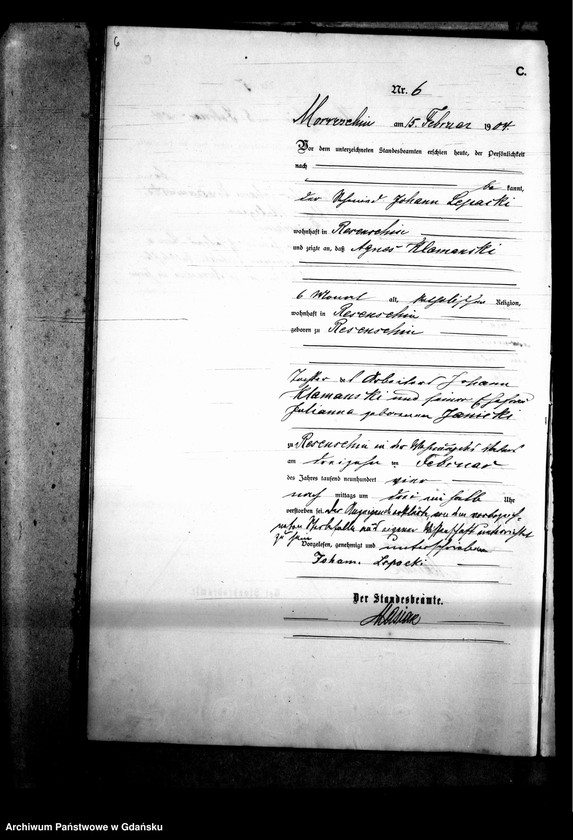 6
C.
Nr. 6
Morroschin am 15. Februar 1904.
Vor dem unterzeichneten Standesbeamten erschien heute, der Persönlichkeit
nach
be kannt,
der Johann Lepacki
wohnhaft in Resenschin
und zeigte an, daß Agnes Klamanski
6 Monat alt, katholischer Religion,
wohnhaft in Resenschin
geboren zu Resenschin
Tochter des Arbeiters Johann
Klamanski und seiner Ehefrau
Julianna geborenen Janicki
zu Resenschin in der
am dreizehn ten Februar
des Jahres tausend neunhundert vier
nach mittags um drei ein halb Uhr
verstorben sei. der Anzeigende erklärte, von dem vorbezeich-
neten Sterbefalle aus eigener Wissenschaft unterrichtet
zu sein
Vorgelesen, genehmigt und unterschrieben
Johann Lepacki
Der Standesbeamte.
Archiwum Państwowe w Gdańsku